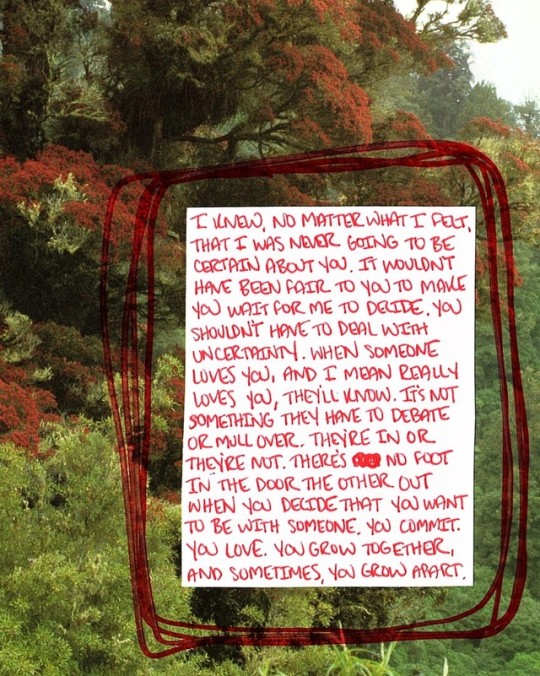 I KNEW, NO MATTER WHAT I FELT,
THAT I WAS NEVER GOING TO BE
CERTAIN ABOUT YOU. IT WOULDN'T
HAVE BEEN FAIR TO YOU TO MAKE
YOU WAIT FOR ME TO DECIDE. YOU
SHOULDN'T HAVE TO DEAL WITH
UNCERTAINTY. WHEN SOMEONE
LOVES YOU, AND I MEAN REALLY
LOVES YOU, THEY'LL KNOW. IT'S NOT
SOMETHING THEY HAVE TO DEBATE
OR MULL OVER. THEY'RE IN OR
THEY'RE NOT. THERE'S NO FOOT
IN THE DOOR THE OTHER OUT
WHEN YOU DECIDE THAT YOU WANT
TO BE WITH SOMEONE. YOU COMMIT.
YOU LOVE. YOU GROW TOGETHER,
AND SOMETIMES, YOU GROW APART.